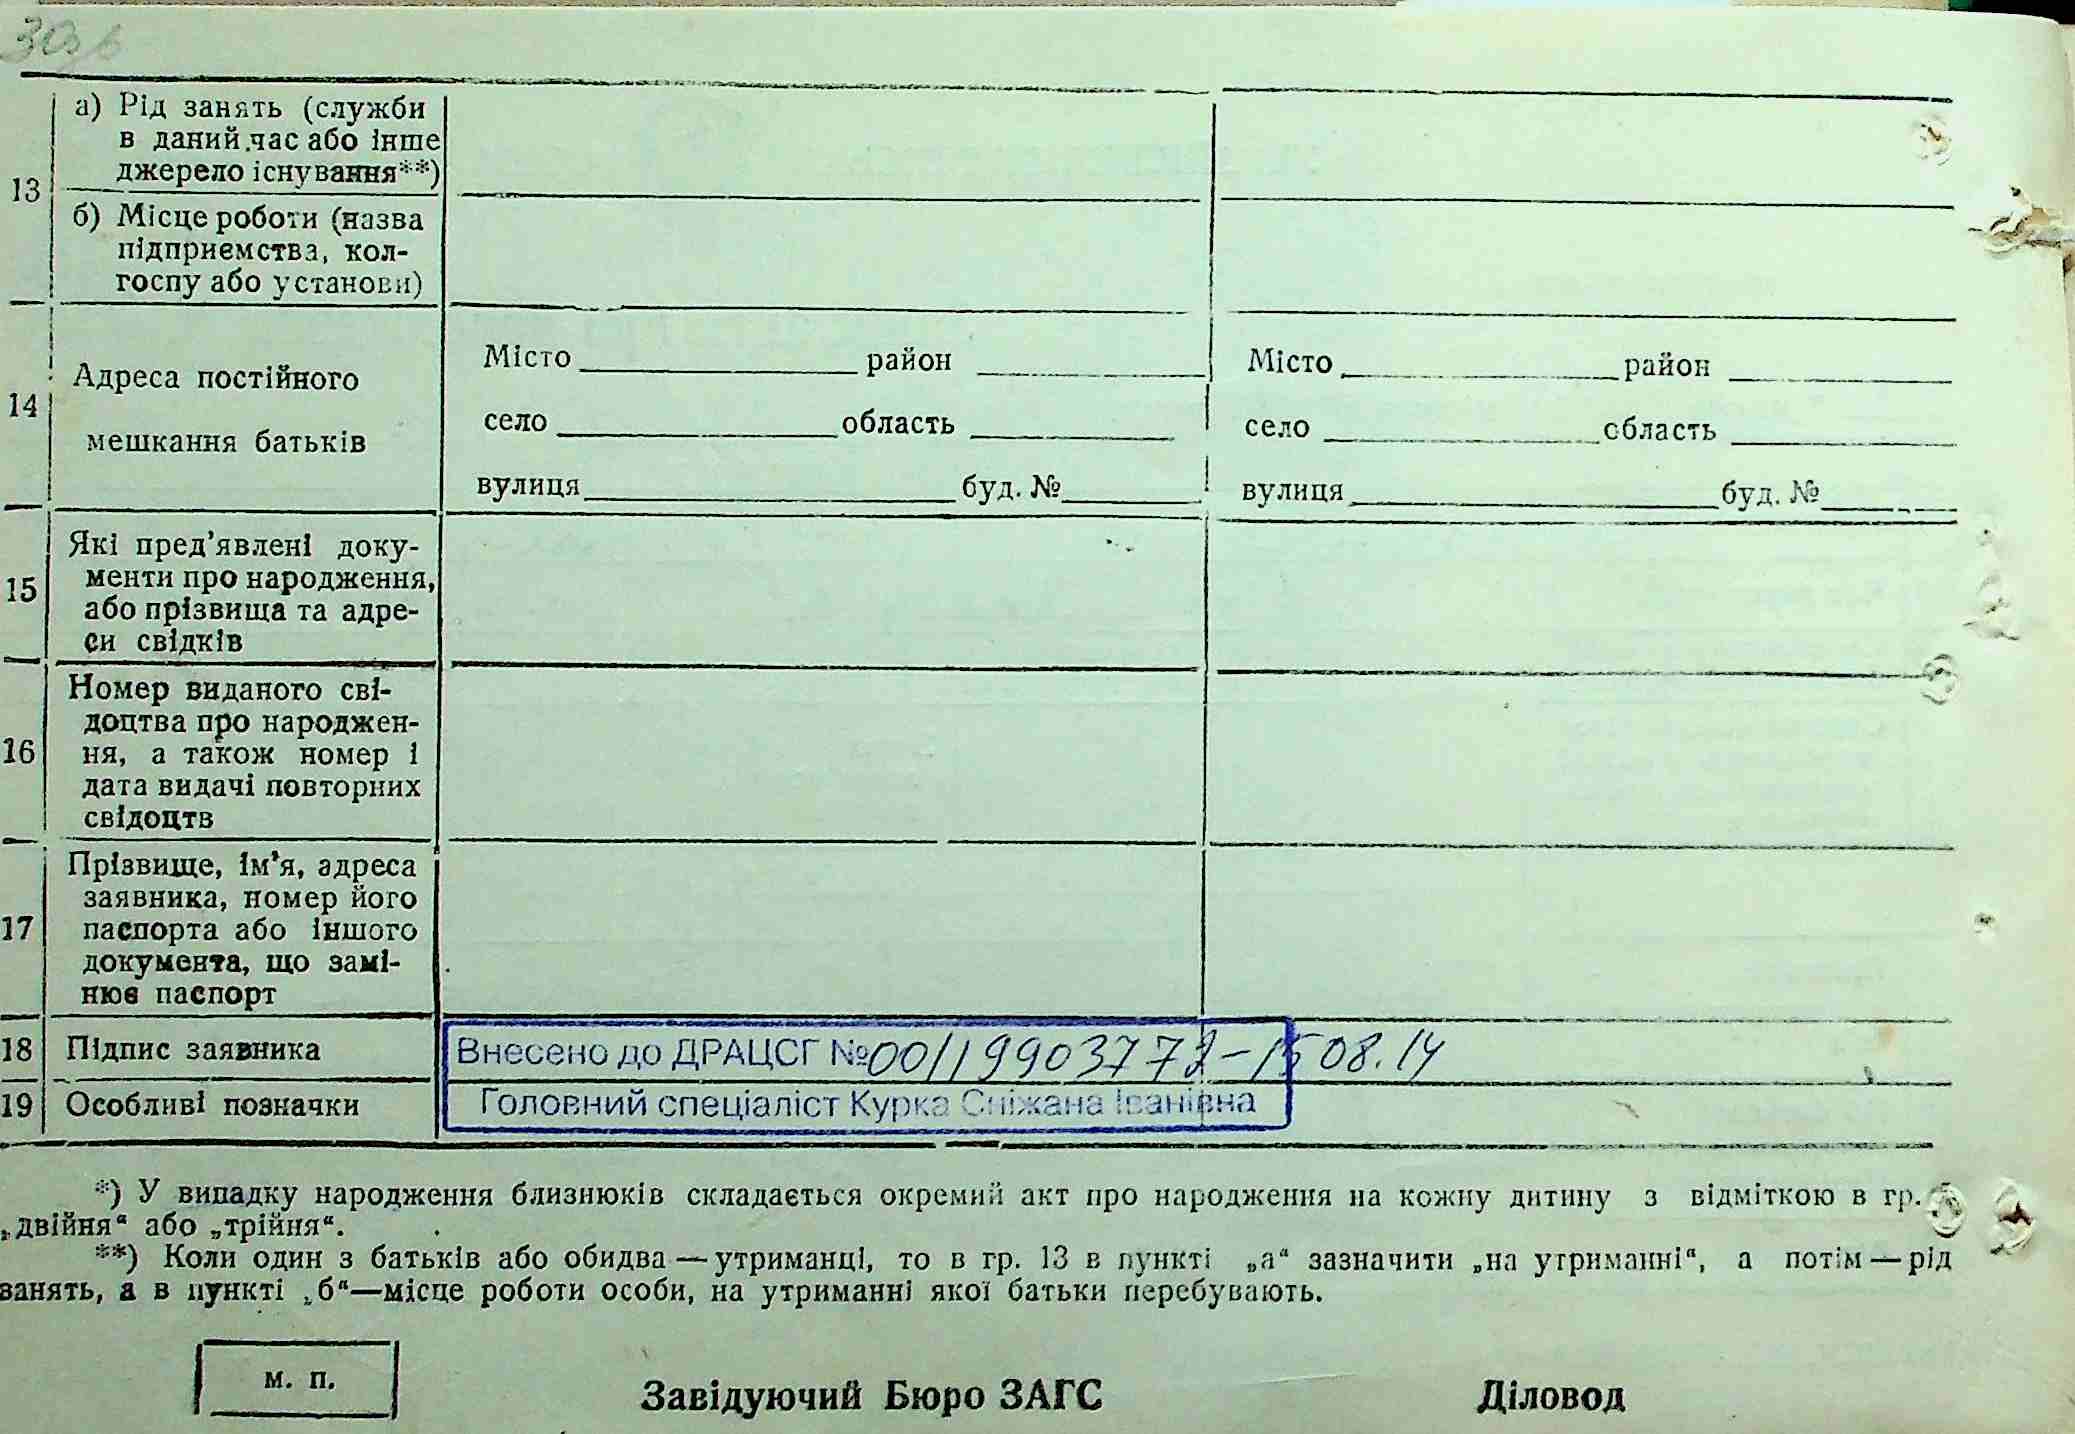 30зв
13
а) Рід занять (служби
в даний час або інше
джерело існування**)
б) Місце роботи (назва
підприємства, кол-
госпу або установи)
14
Адреса постійного
мешкання батьків
Місто район
село область
вулиця буд. №
Місто район
село область
вулиця буд. №
15
Які пред’явлені доку-
менти про народження,
або прізвища та адре-
си свідків
16
Номер виданого сві-
доцтва про народжен-
ня, а також номер і
дата видачі повторних
свідоцтв
17
Прізвище, ім’я, адреса
заявника, номер його
паспорта або іншого
документа, що замі-
нює паспорт
18 Підпис заявника
Внесено до ДРАЦСГ №00119903772–15 08.14
19 Особливі позначки
Головний спеціаліст Курка Сніжана Іванівна
*) У випадку народження близнюків складається окремий акт про народження на кожну дитину з відміткою в гр.
„двійня“ або „трійня“.
**) Коли один з батьків або обидва—утриманці, то в гр. 13 в пункті „а“ зазначити „на утриманні“, а потім—рід
занять, а в пункті „б“—місце роботи особи, на утриманні якої батьки перебувають.
м. п.
Завідуючий Бюро ЗАГС Діловод